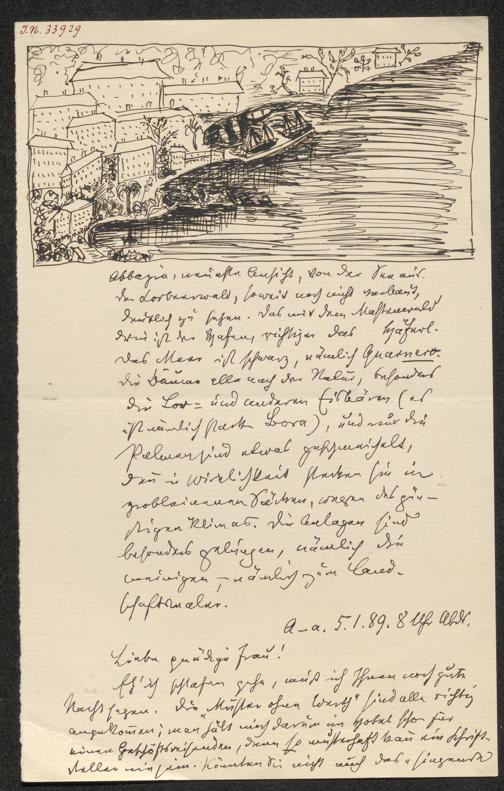 I.N. 33929
Abbazia, neueste Ansicht, von der See aus.
Der Lorbeerwald, soweit noch nicht verbaut,
deutlich zu sehen. Das mit dem Mastenwald
drin ist der Hafen, richtiger das Häferl.
Das Meer ist schwarz, nämlich Quarnero.
Die Bäume alle nach der Natur, besonders
die Lor- und anderen Eisbären (es
ist nämlich starke Bora), und nur die
Palmen sind etwas geschmeichelt,
denn in Wirklichkeit stecken sie in
grobleinenen Säcken, wegen des gün-
stigen Klimas. Die Anlagen sind
besonders gelungen, nämlich die
meinigen, nämlich zum Land-
schaftsmaler.
A–a. 5.1.89. 8 Uhr Abds.
Liebe gnädige Frau!
Eh' ich schlafen gehe, muß ich Ihnen noch gute
Nacht sagen. Die "Muster ohne Wert" sind alle richtig
angekommen; man hält mich darum im Hotel schon für
einen Geschäftsreisenden, denn so musterhaft kann ein Schrift-
steller nie sein. Könnten Sie nicht auch das "singende